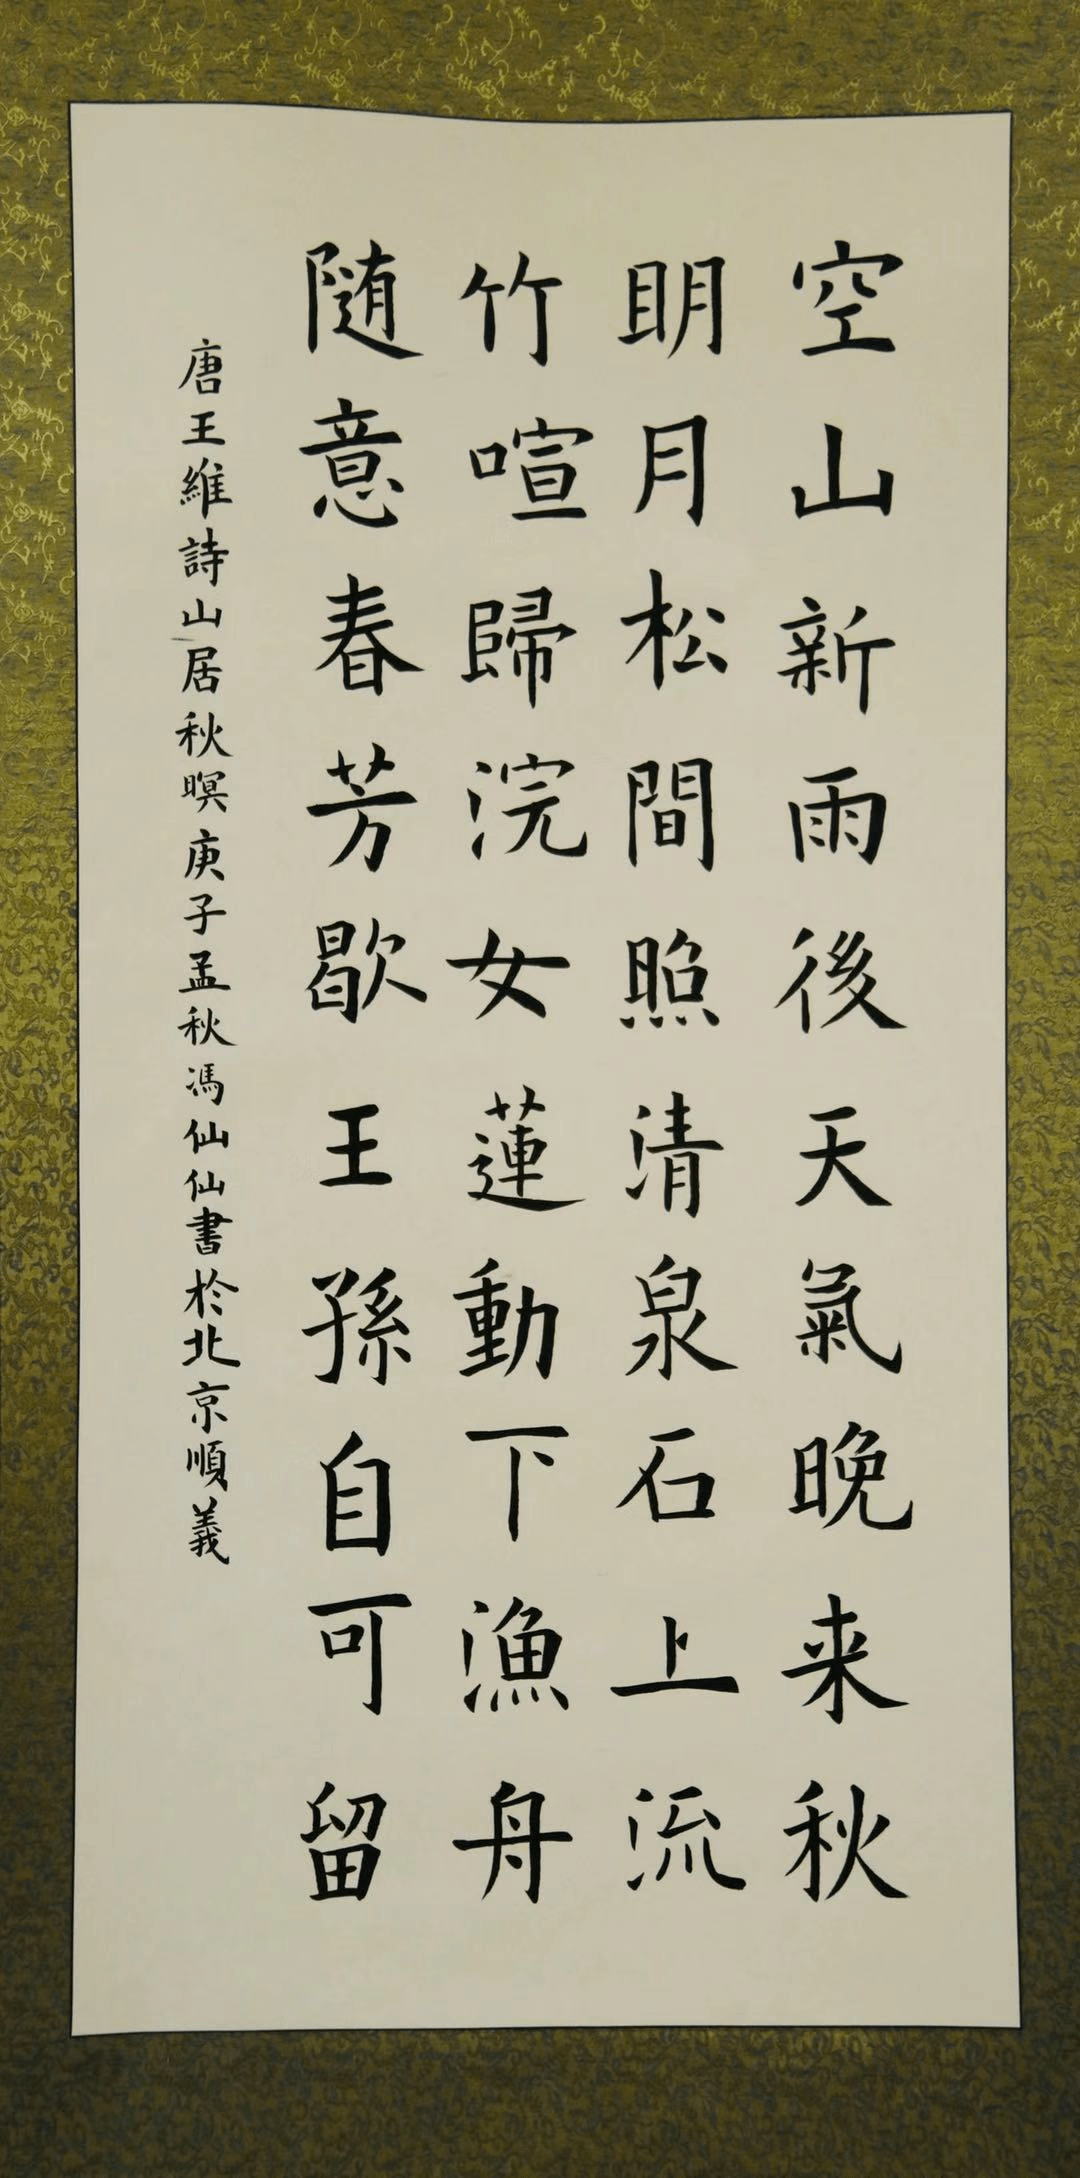 空山新雨後天氣晚来秋
明月松間照清泉石上流
竹喧歸浣女蓮動下漁舟
随意春芳歇王孫自可留
唐王維詩山居秋暝庚子孟秋馮仙仙書於北京順義